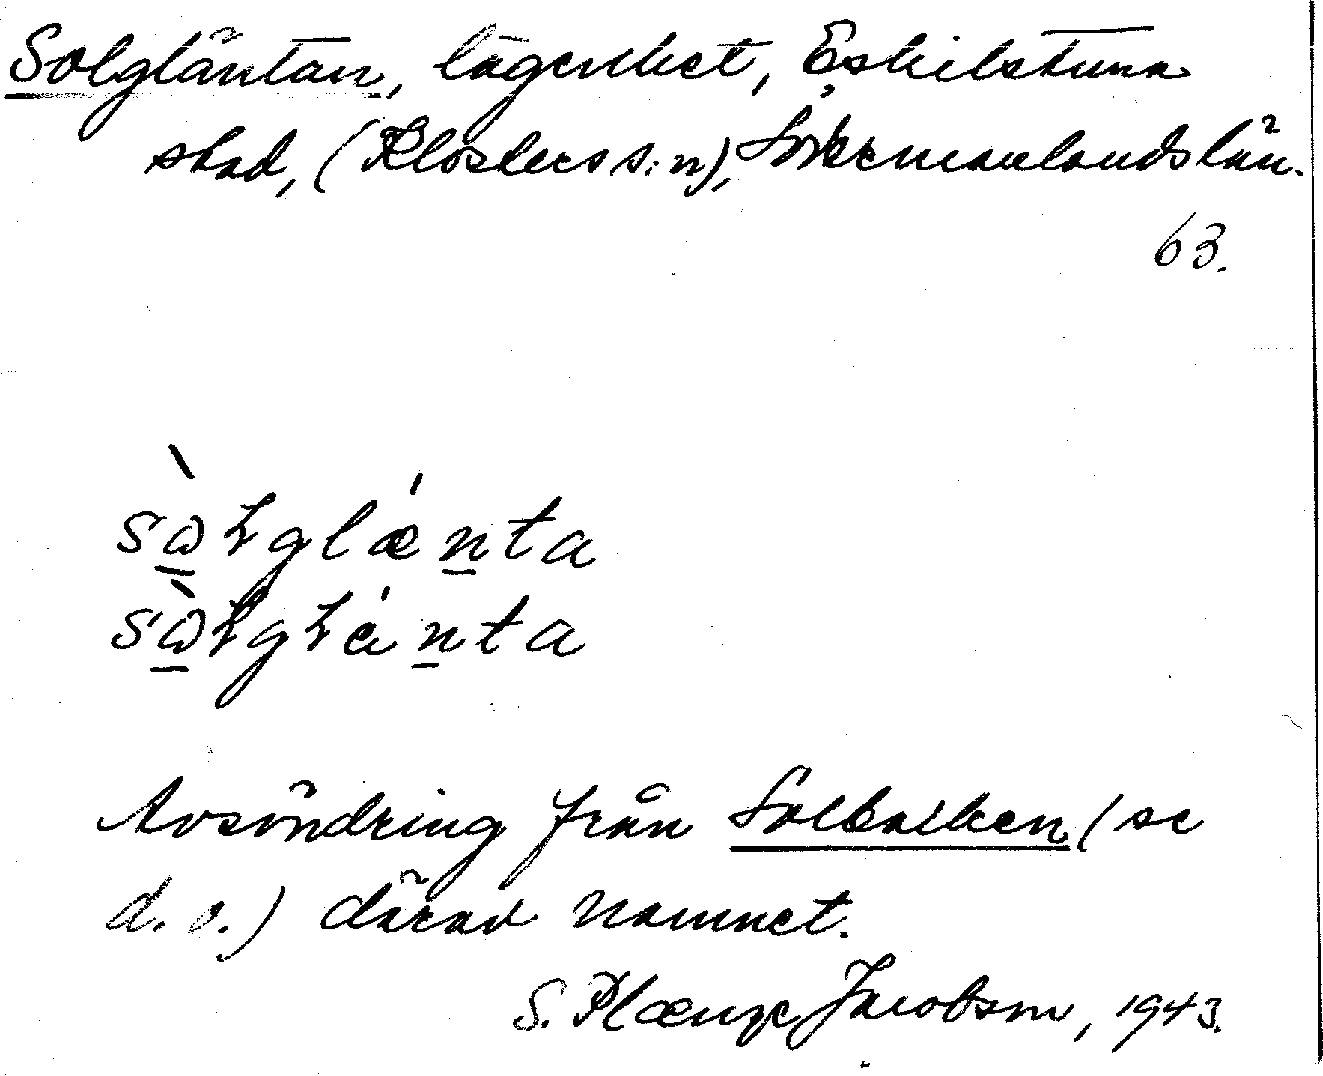 Solgläntan, lägenhet, Eskilstuna
stad, (Klosters s:n), Södermanlands län.
63.
sὼłglǽnta
sὼłgłánta
Avsöndring från Solbacken (se
d. o.) därav namnet.
S. Plænge Jacobson, 1943.